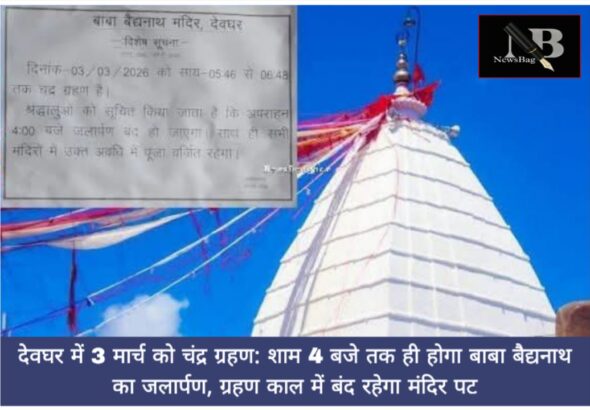 बाबा बैद्यनाथ मंदिर, देवघर
विशेष सूचना
दिनांक-03/03/2026 को सायं-05:46 से 06:48
तक चंद्र ग्रहण है।
श्रद्धालुओं को सूचित किया जाता है कि अपराहन
4:00 बजे जलार्पण बंद हो जाएगा। साथ ही सभी
मंदिरों में उक्त अवधि में पूजा वर्जित रहेगा।
NB
NewsBag
देवघर में 3 मार्च को चंद्र ग्रहण: शाम 4 बजे तक ही होगा बाबा बैद्यनाथ
का जलार्पण, ग्रहण काल में बंद रहेगा मंदिर पट